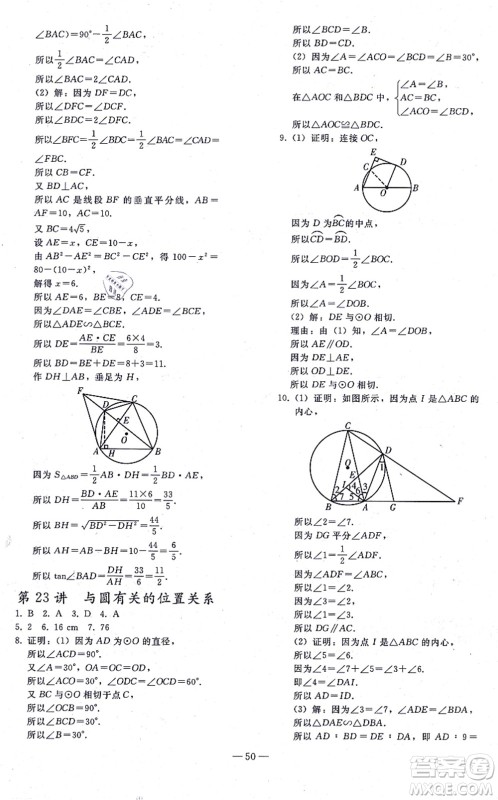 ∠BAC)=90°-1/2∠BAC,
所以1/2∠BAC=∠CAD,
所以∠BAC=2∠CAD.
(2)解:因为DF=DC,
所以∠DFC=∠DCF,
所以∠BDC=2∠DFC,
所以∠BFC=1/2∠BDC=1/2∠BAC=∠FBC,
所以CB=CF.
又BD⊥AC,
所以AC是线段BF的垂直平分线,AB=AF=10,AC=10.
又BC=4√5,
设AE=x,CE=10-x,
由AB²-AE²=BC²-CE²,得100-x²=80-(10-x)²,
解得x=6.
所以AE=6,BE=8,CE=4.
因为∠DAE=∠CBE,∠ADE=∠BCE,
所以△ADE∽△BCE,
所以DE=AE·CE/BE=6×4/8=3,
所以BD=BE+DE=8+3=11.
作DH⊥AB,垂足为H,
F
D
C
E
O
A
H
B
因为S△ABD=1/2AB·DH=1/2BD·AE,
所以DH=BD·AE/AB=11×6/10=33/5,
所以BH=√(BD²-DH²)=44/5,
所以AH=AB-BH=10-44/5=6/5,
所以tan∠BAD=DH/AH=33/6=11/2.
第23讲 与圆有关的位置关系
1.B 2.A 3.D 4.A
5.2 6.16 cm 7.76
8.证明:(1)因为AD为⊙O的直径,
所以∠ACD=90°.
又∠A=30°,
所以∠CDA=60°.
又BD与⊙O相切于点D,
所以∠CDB=30°.
又∠BCD=90°,
所以∠B=60°,
所以∠BCD=∠B.
所以BD=CD.
(2)因为∠A=∠ACO=∠BCD=∠B=30°,
所以AC=BC,
在△AOC和△BDC中,{∠A=∠B,
AC=BC,
∠ACO=∠BCD,
所以△AOC≌△BDC.
9.(1)证明:连接OC,
E
C
D
A
O
B
因为D为BC的中点,
所以CD=BD.
所以∠BOD=1/2∠BOC,
因为∠A=1/2∠BOC,
所以∠A=∠DOB.
(2)解:DE与⊙O相切.
理由:由(1)知,∠A=∠DOF,
所以AE∥OD.
因为DE⊥AE.
所以OD⊥DE.
所以DE与⊙O相切.
10.(1)证明:如图所示,因为点I是△ABC的内心,
C
D
Q
I
B
A
G
F
所以∠2=∠7.
因为DG平分∠ADF,
所以∠1=1/2∠ADF.
因为∠ADF=∠ABC,
所以∠1=∠2.
因为∠3=∠2,
所以∠1=∠3,
所以DG∥AC.
(2)证明:因为点I是△ABC的内心,
所以∠5=∠6.
因为∠4=∠7+∠5=∠3+∠6.
即∠4=∠DAI.
所以DA=DI.
(3)解:因为∠3=∠7,∠ADE=∠BAD.
所以△DAE∽△DBA.
所以AD∶DB=DE∶DA,即AD∶9=
—50—